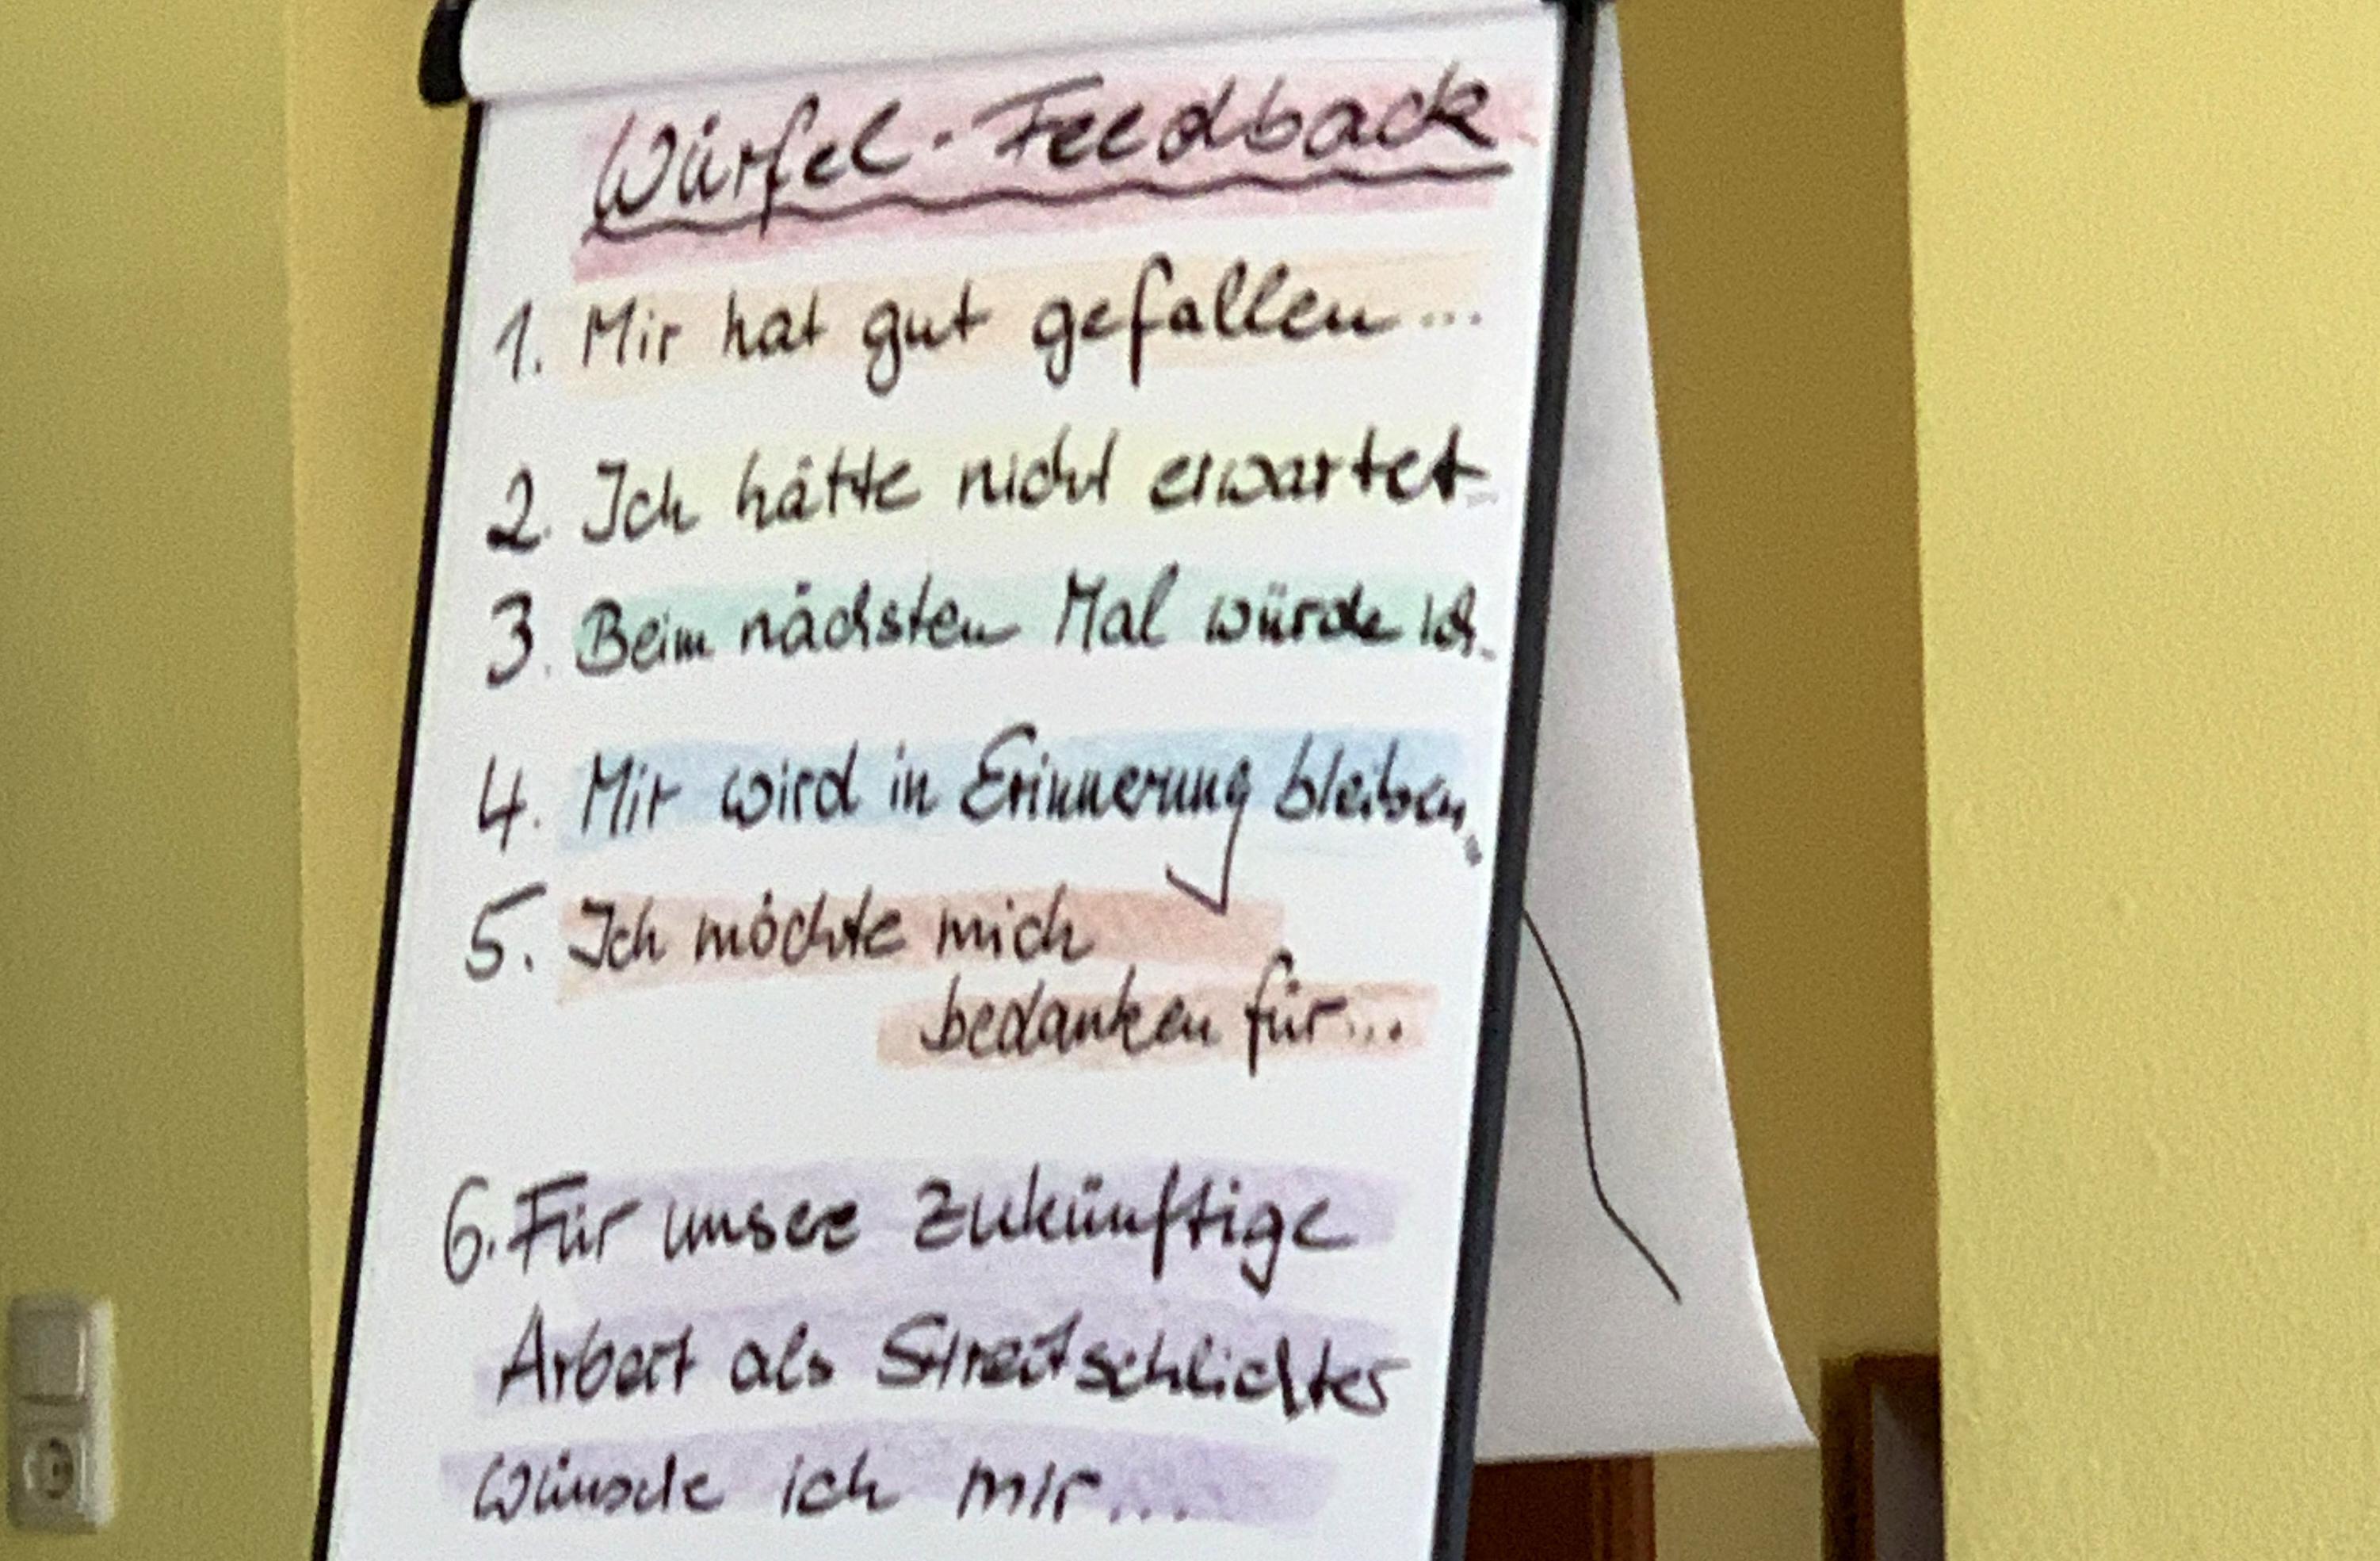 Würfel-Feedback
1. Mir hat gut gefallen...
2. Ich hätte nicht erwartet...
3. Beim nächsten Mal würde ich...
4. Mir wird in Erinnerung bleiben...
5. Ich möchte mich
bedanken für...
6. Für unsere zukünftige
Arbeit als Streitschlichter
wünsche ich mir....